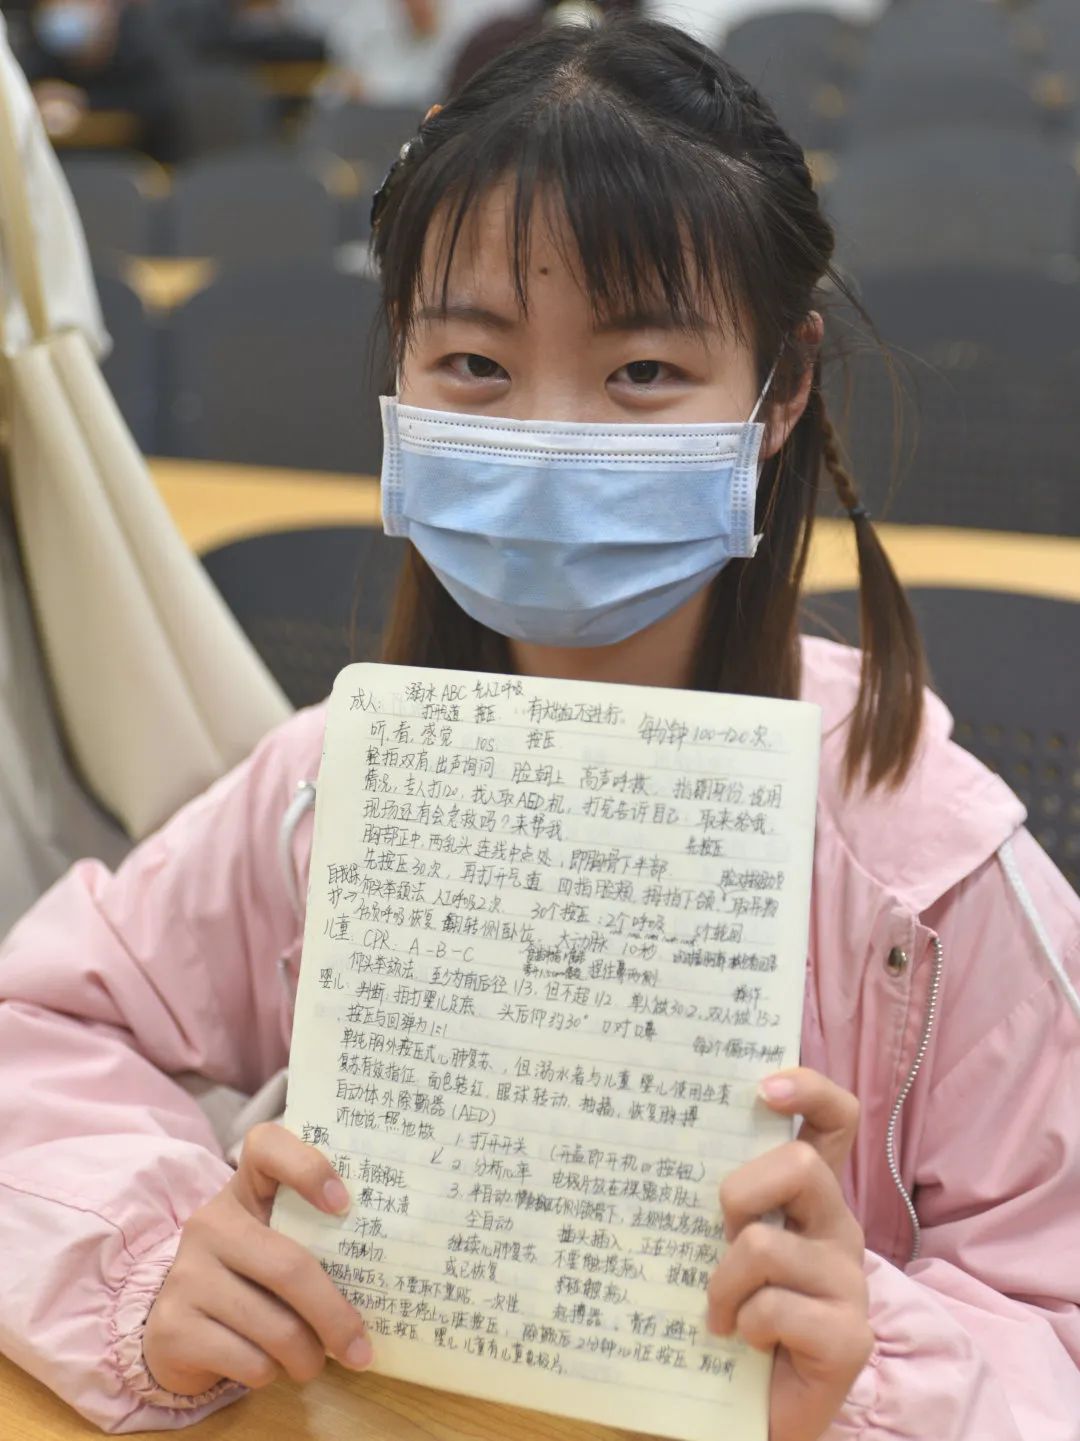 成人: 溺水 ABC 先人工呼吸
打开气道 按压 有大出血不进行。 每分钟100-120次。
听,看,感觉 10s 按压
轻拍双肩,出声询问 脸朝上 高声呼救, 指明身份,说明
情况,专人打120,找人取AED机,打完告诉自己 取来给我,
现场还有会急救吗?来帮我 先按压
胸部正中,两乳头连线中点处,即胸骨下半部.
先按压30次,再打开气道 四指 拇指下颌,取异物
自我保护→仰头举颏法 人工呼吸2次 30个按压:2个呼吸 5个轮回
呼吸恢复 翻转侧卧位 大动脉 10秒
儿童: CPR: A-B-C 捏住鼻两侧 操作
仰头举颏法 至少为前后径1/3,但不超1/2 单人做30:2,双人做15:2
婴儿: 判断:拍打婴儿足底 头后仰约30° 口对口鼻
按压与回弹为1=1 每2个循环判断
单纯胸外按压式心肺复苏,但溺水者与儿童婴儿使用全套
复苏有效指征 面色转红,眼球转动,抽搐,恢复脉搏
自动体外除颤器(AED)
听他说,照他做 1.打开开关 (开盖即开机or按钮)
室颤 2.分析心率 电极片放在裸露皮肤上
前:清除胸毛 3.半自动 右侧锁骨下,
擦干水渍 全自动 插头插入,正在分析病人
汗液 继续心肺复苏 不要触摸病人 提醒
内有剃刀 或已恢复 移触病人
电极片贴反了,不要取下重贴,一次性 起搏器。 避开
时不要停止心脏按压, 除颤后2分钟心脏按压 再分析
心脏按压 婴儿儿童有儿童电极片.